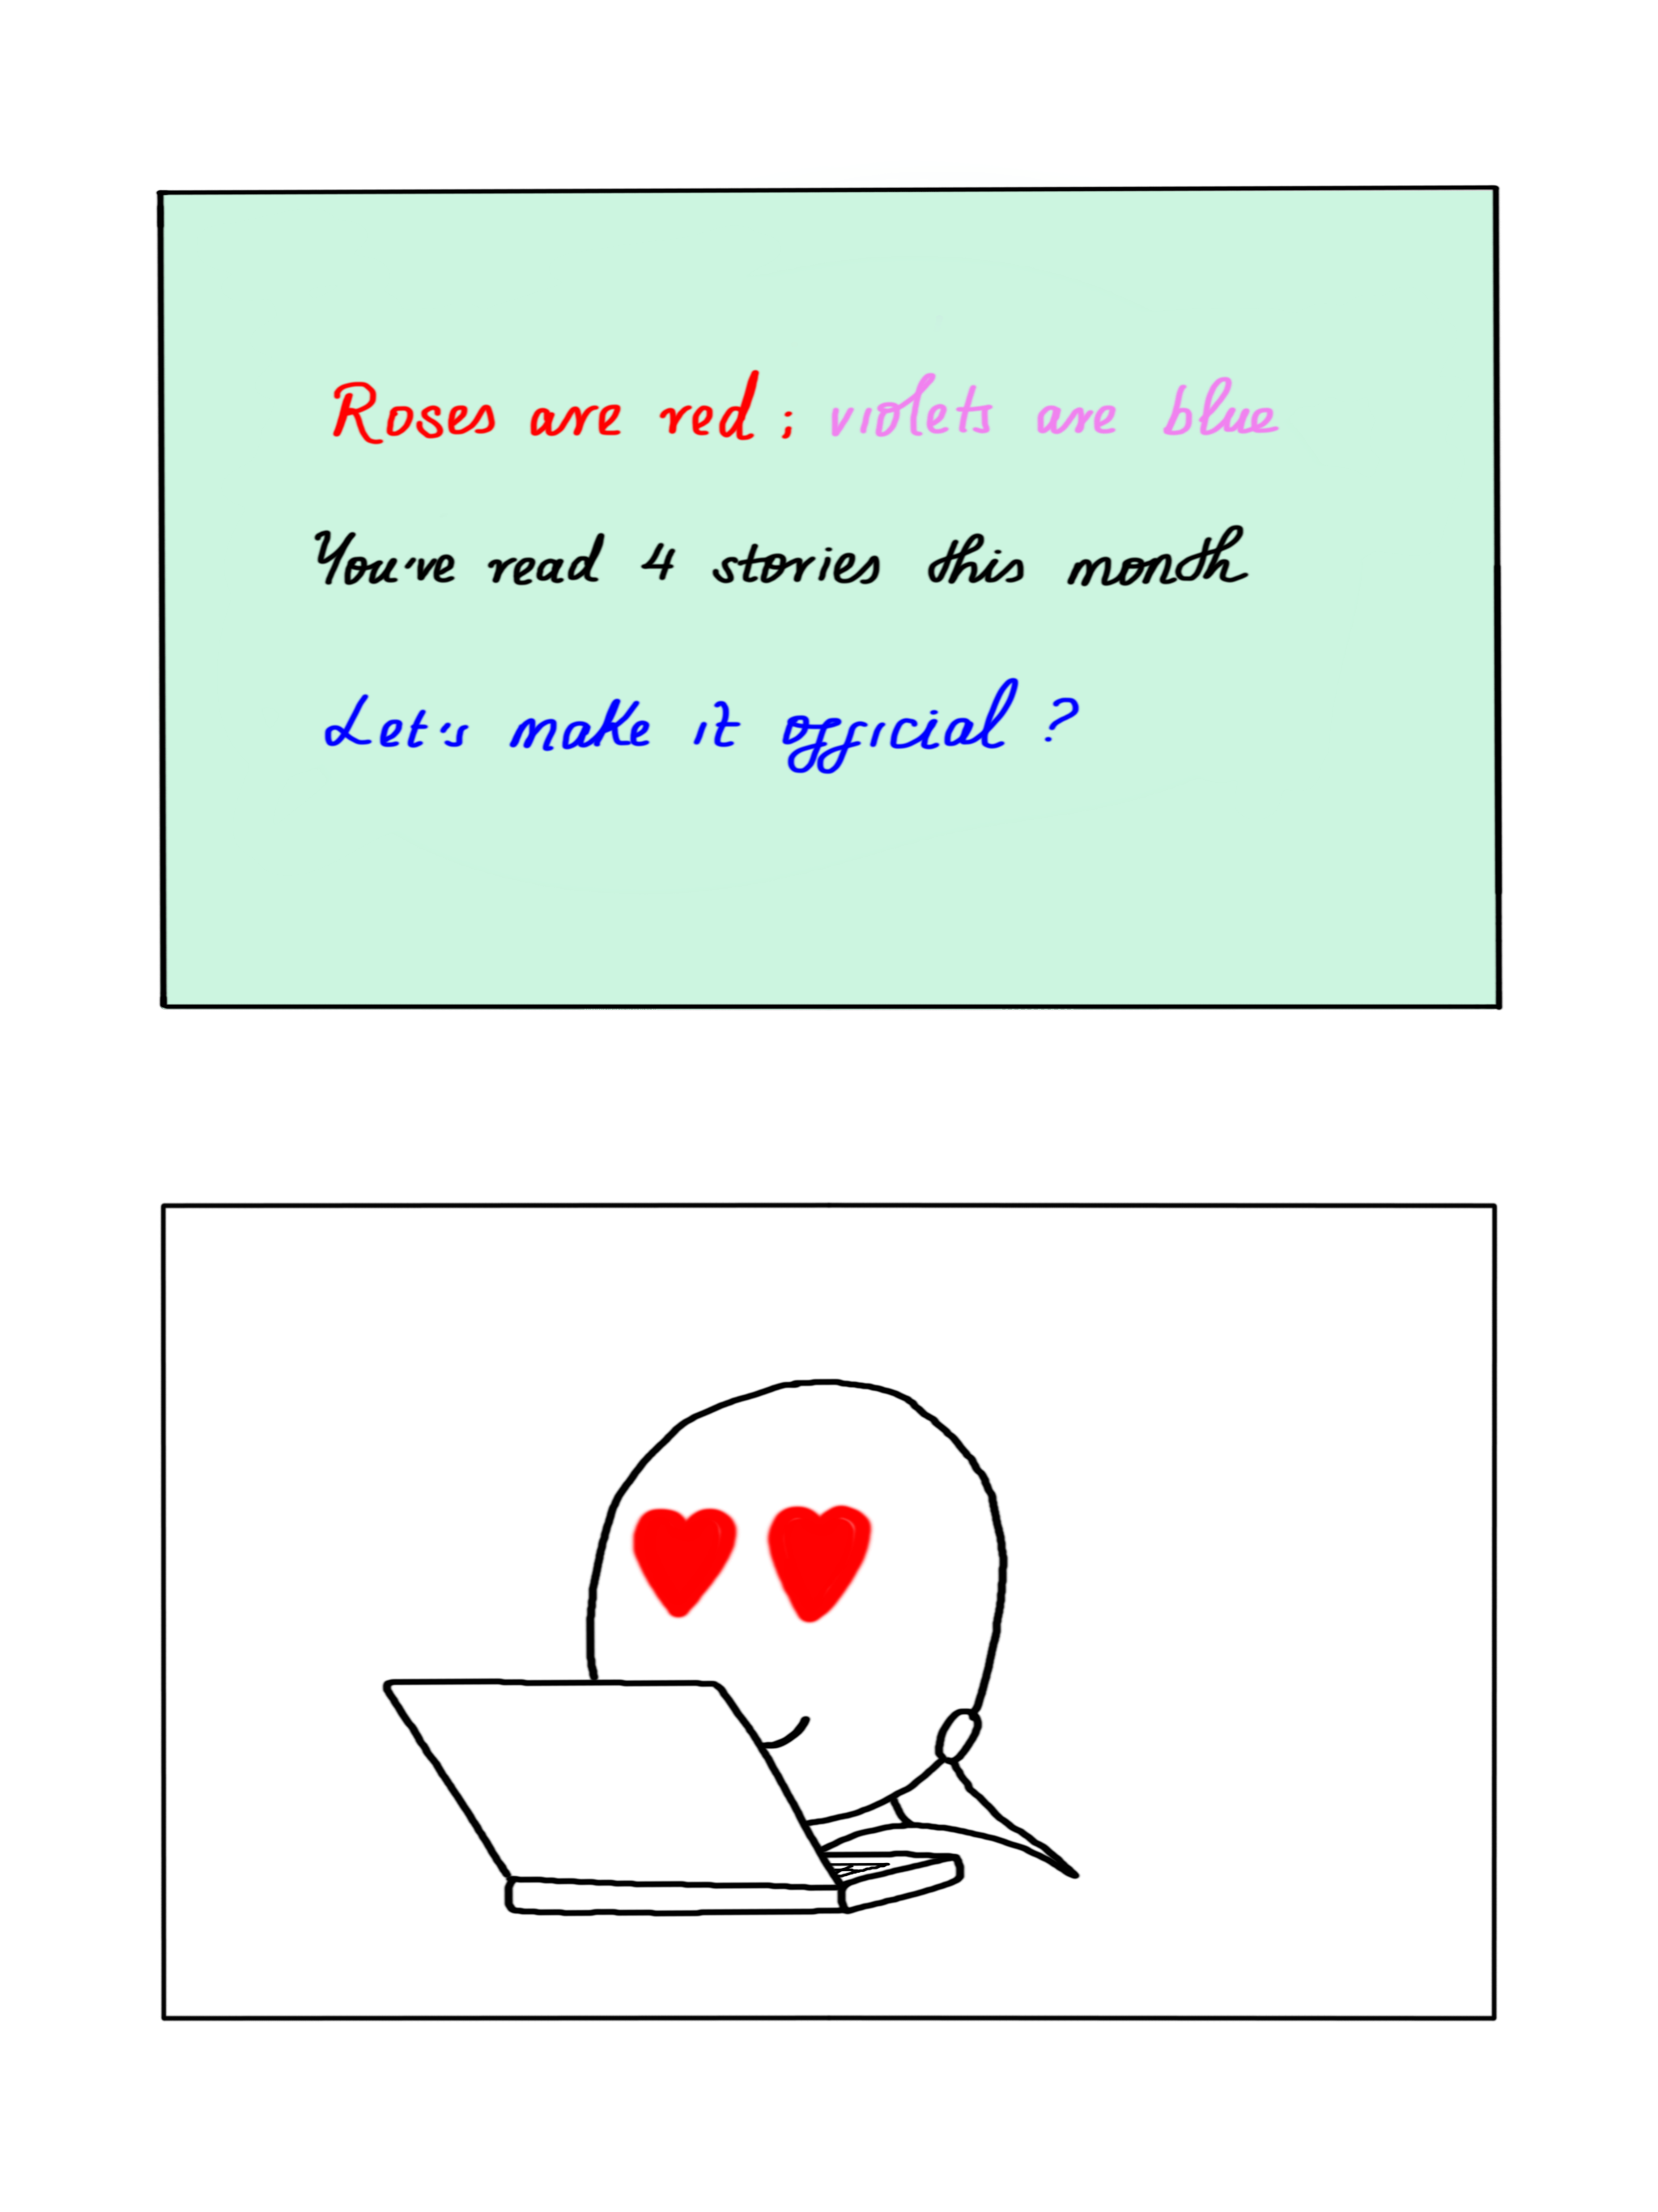 Roses are red; violets are blue
You've read 4 stories this month
Let's make it official?